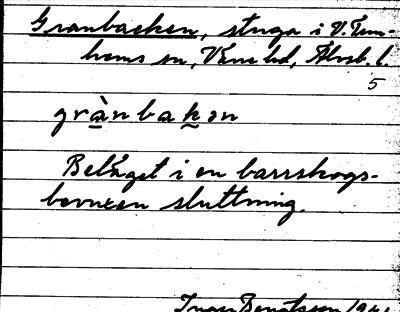 Granbacken, stuga i V. Tun-
hems sn, Väne hd, Älvsb. l.
5
grànbakən
Beläget i en barrskogs-
bevuxen sluttning.
Ingar Bengtsson